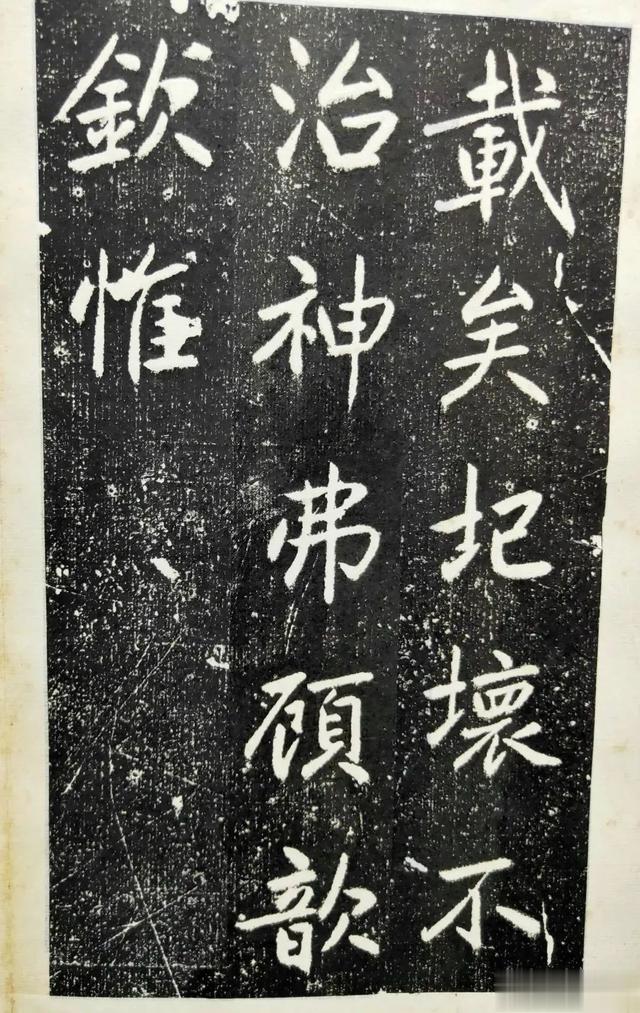 載矣圮壞不
治神弗顧歆
欽惟